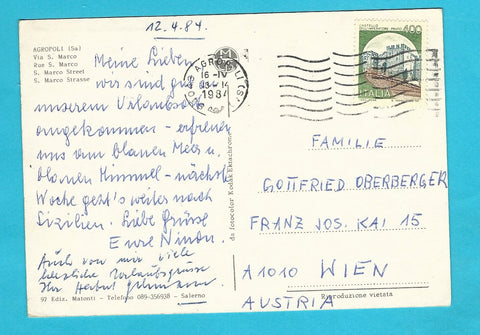 12.4.84.
AGROPOLI (Sa)
Via S. Marco
Rue S. Marco
S. Marco Street
S. Marco Strasse
Meine Lieben,
wir sind gut in
unserem Urlaubsort
angekommen - erfreuen
uns am blauen Meer u.
blauen Himmel - nächste
Woche geht's weiter nach
Sizilien. Liebe Grüsse
Eure
Auch von mir viele
herzliche Urlaubsgrüsse
Ihr Herbert
97 Ediz. Matonti - Telefono 089-356938 - Salerno
da fotocolor Kodak Ektachrome
AGROPOLI (S
16-IV
198
400
ITALIA
FAMILIE
GOTTFRIED OBERBERGER
FRANZ JOS. KAI 15
A1010 WIEN
AUSTRIA
Riproduzione vietata